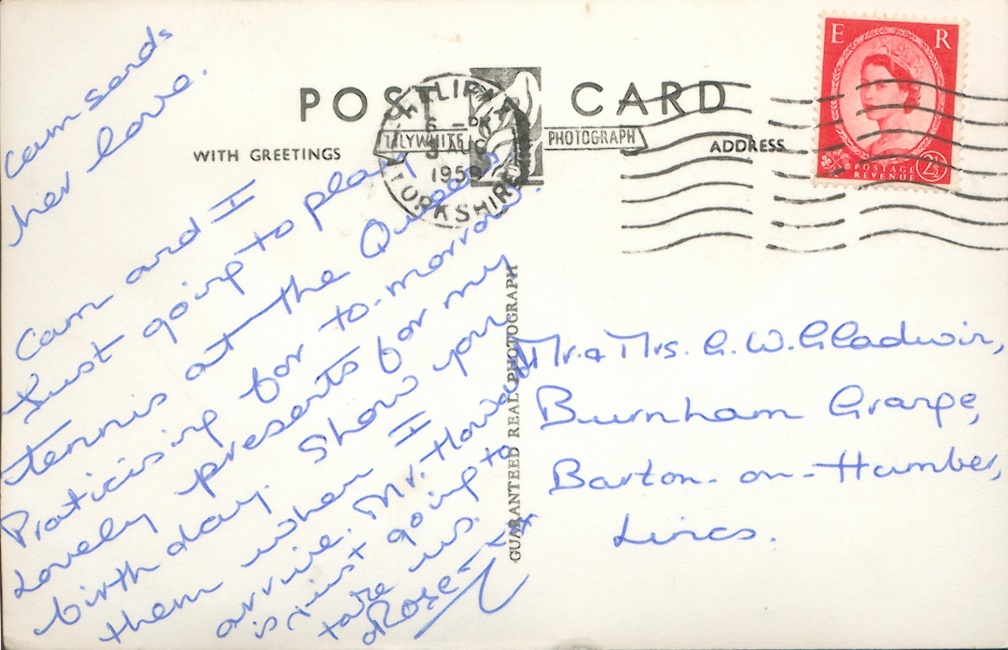 POST CARD
WITH GREETINGS
LILYWHITE
PHOTOGRAPH
ADDRESS
E R
POSTAGE
REVENUE
2½
PM
AUG
195
YORKSHIRE
GUARANTEED REAL PHOTOGRAPH
Cam sends
her love.
Cam and I
Just going to play
tennis at the Queens.
Praticising for to-morrow.
Lovely presents for my
birthday. Show you
them when I
arrive. Mr. Howard
is just going to
take us.
Rose
Mr. & Mrs. G. W. Gladwin,
Burnham Grange,
Barton-on-Humber,
Lincs.